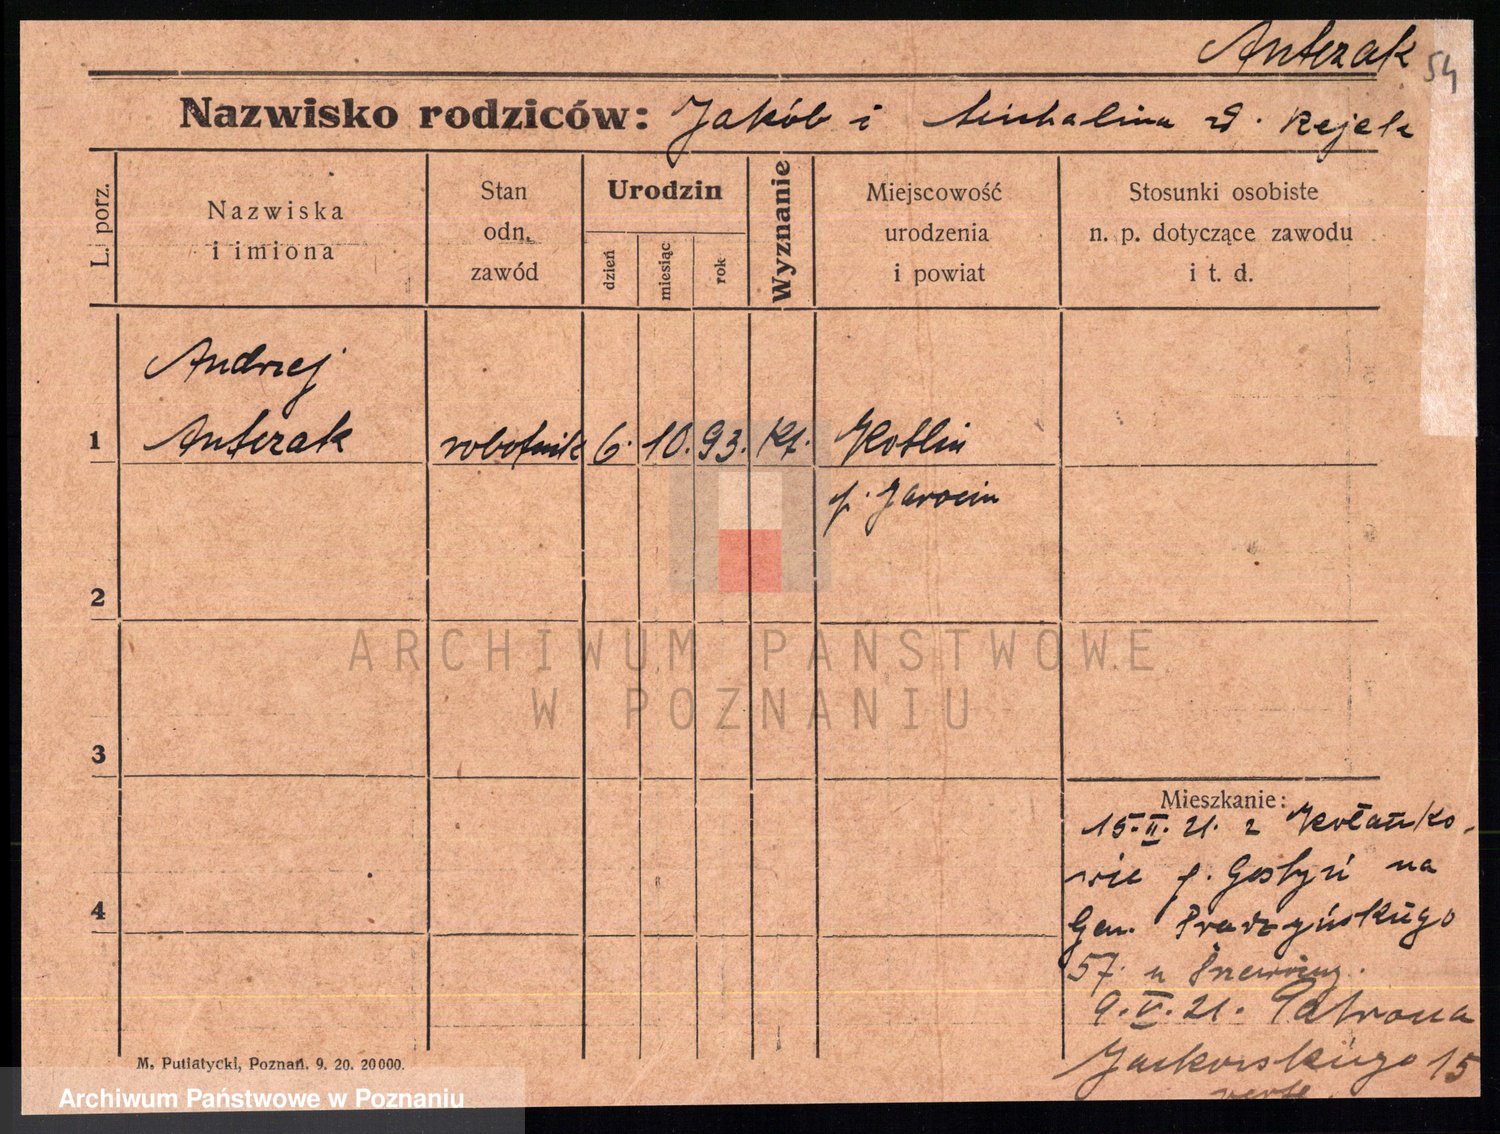 Antczak
54
Nazwisko rodziców: Jakób i Michalina z d. Rejek
L. porz.
Nazwiska
i imiona
Stan
odn.
zawód
Urodzin
dzień
miesiąc
rok
Wyznanie
Miejscowość
urodzenia
i powiat
Stosunki osobiste
n. p. dotyczące zawodu
i t. d.
Andrzej
1 Antczak robotnik 6. 10. 93. kt. Kotlin
p. Jarocin
2
ARCHIWUM PAŃSTWOWE
W POZNANIU
3
Mieszkanie:
15.II.21. z
wie p. Gostyń na
Gen. Prądzyńskiego
57. u
9.V.21. Patrona
Jackowskiego 15
verte.
4
M. Putiatycki, Poznań. 9. 20. 20000.
Archiwum Państwowe w Poznaniu